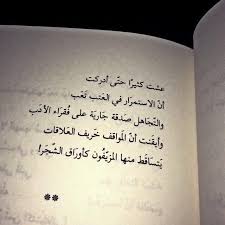 عشت كثيرًا حتّى أدركت
أنّ الاستمرار في العتب تَعَب
والتّجاهل صَدقة جَارية على فُقراء الأدَب
وأيقنت أنّ المَواقف خَريف العَلاقات
يَتساقَط منها المزيّفُون كأورَاق الشّجَر!
**